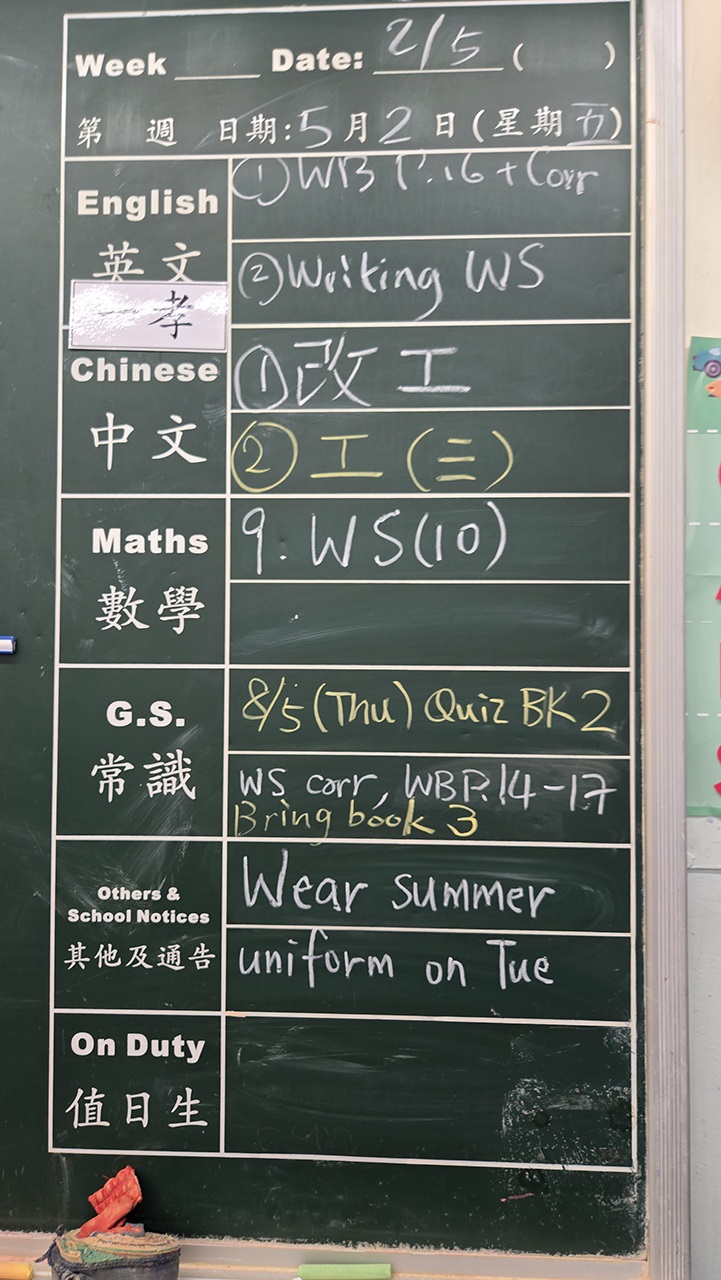 Week ____ Date: 2/5 ( )
第 週 日期:5月2日(星期五)
English
英文
① WB P.16 + Corr
② Writing WS
一孝
Chinese
中文
① 改工
② 工(三)
Maths
數學
9. WS(10)
G.S.
常識
8/5 (Thu) Quiz BK 2
WS corr, WB P.14-17
Bring book 3
Others &
School Notices
其他及通告
Wear summer
uniform on Tue
On Duty
值日生